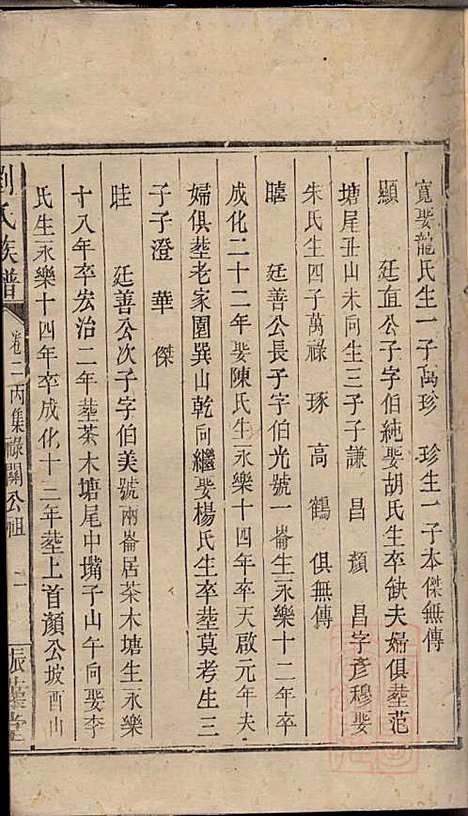 寬娶龍氏生一子萬珍　珍生一子本傑無傳
顯　廷直公子字伯純娶胡氏生卒缺夫婦俱塟范
塘尾丑山未向生三子子謙　昌　顏　昌字彥穆娶
朱氏生四子萬祿　琢　高　鶴　俱無傳
暿　廷善公長子字伯光號一崙生永樂十二年卒
成化二十二年娶陳氏生永樂十四年卒天啟元年夫
婦俱塟老家園巽山乾向繼娶楊氏生卒塟莫考生三
子子澄　華　傑
晆　廷善公次子字伯美號兩崙居茶木塘生永樂
十八年卒宏治二年塟茶木塘尾中嘴子山午向娶李
氏生永樂十四年卒成化十三年塟上首顏公坡酉山
劉氏族譜　卷二丙集祿開公祖　一　振藻堂